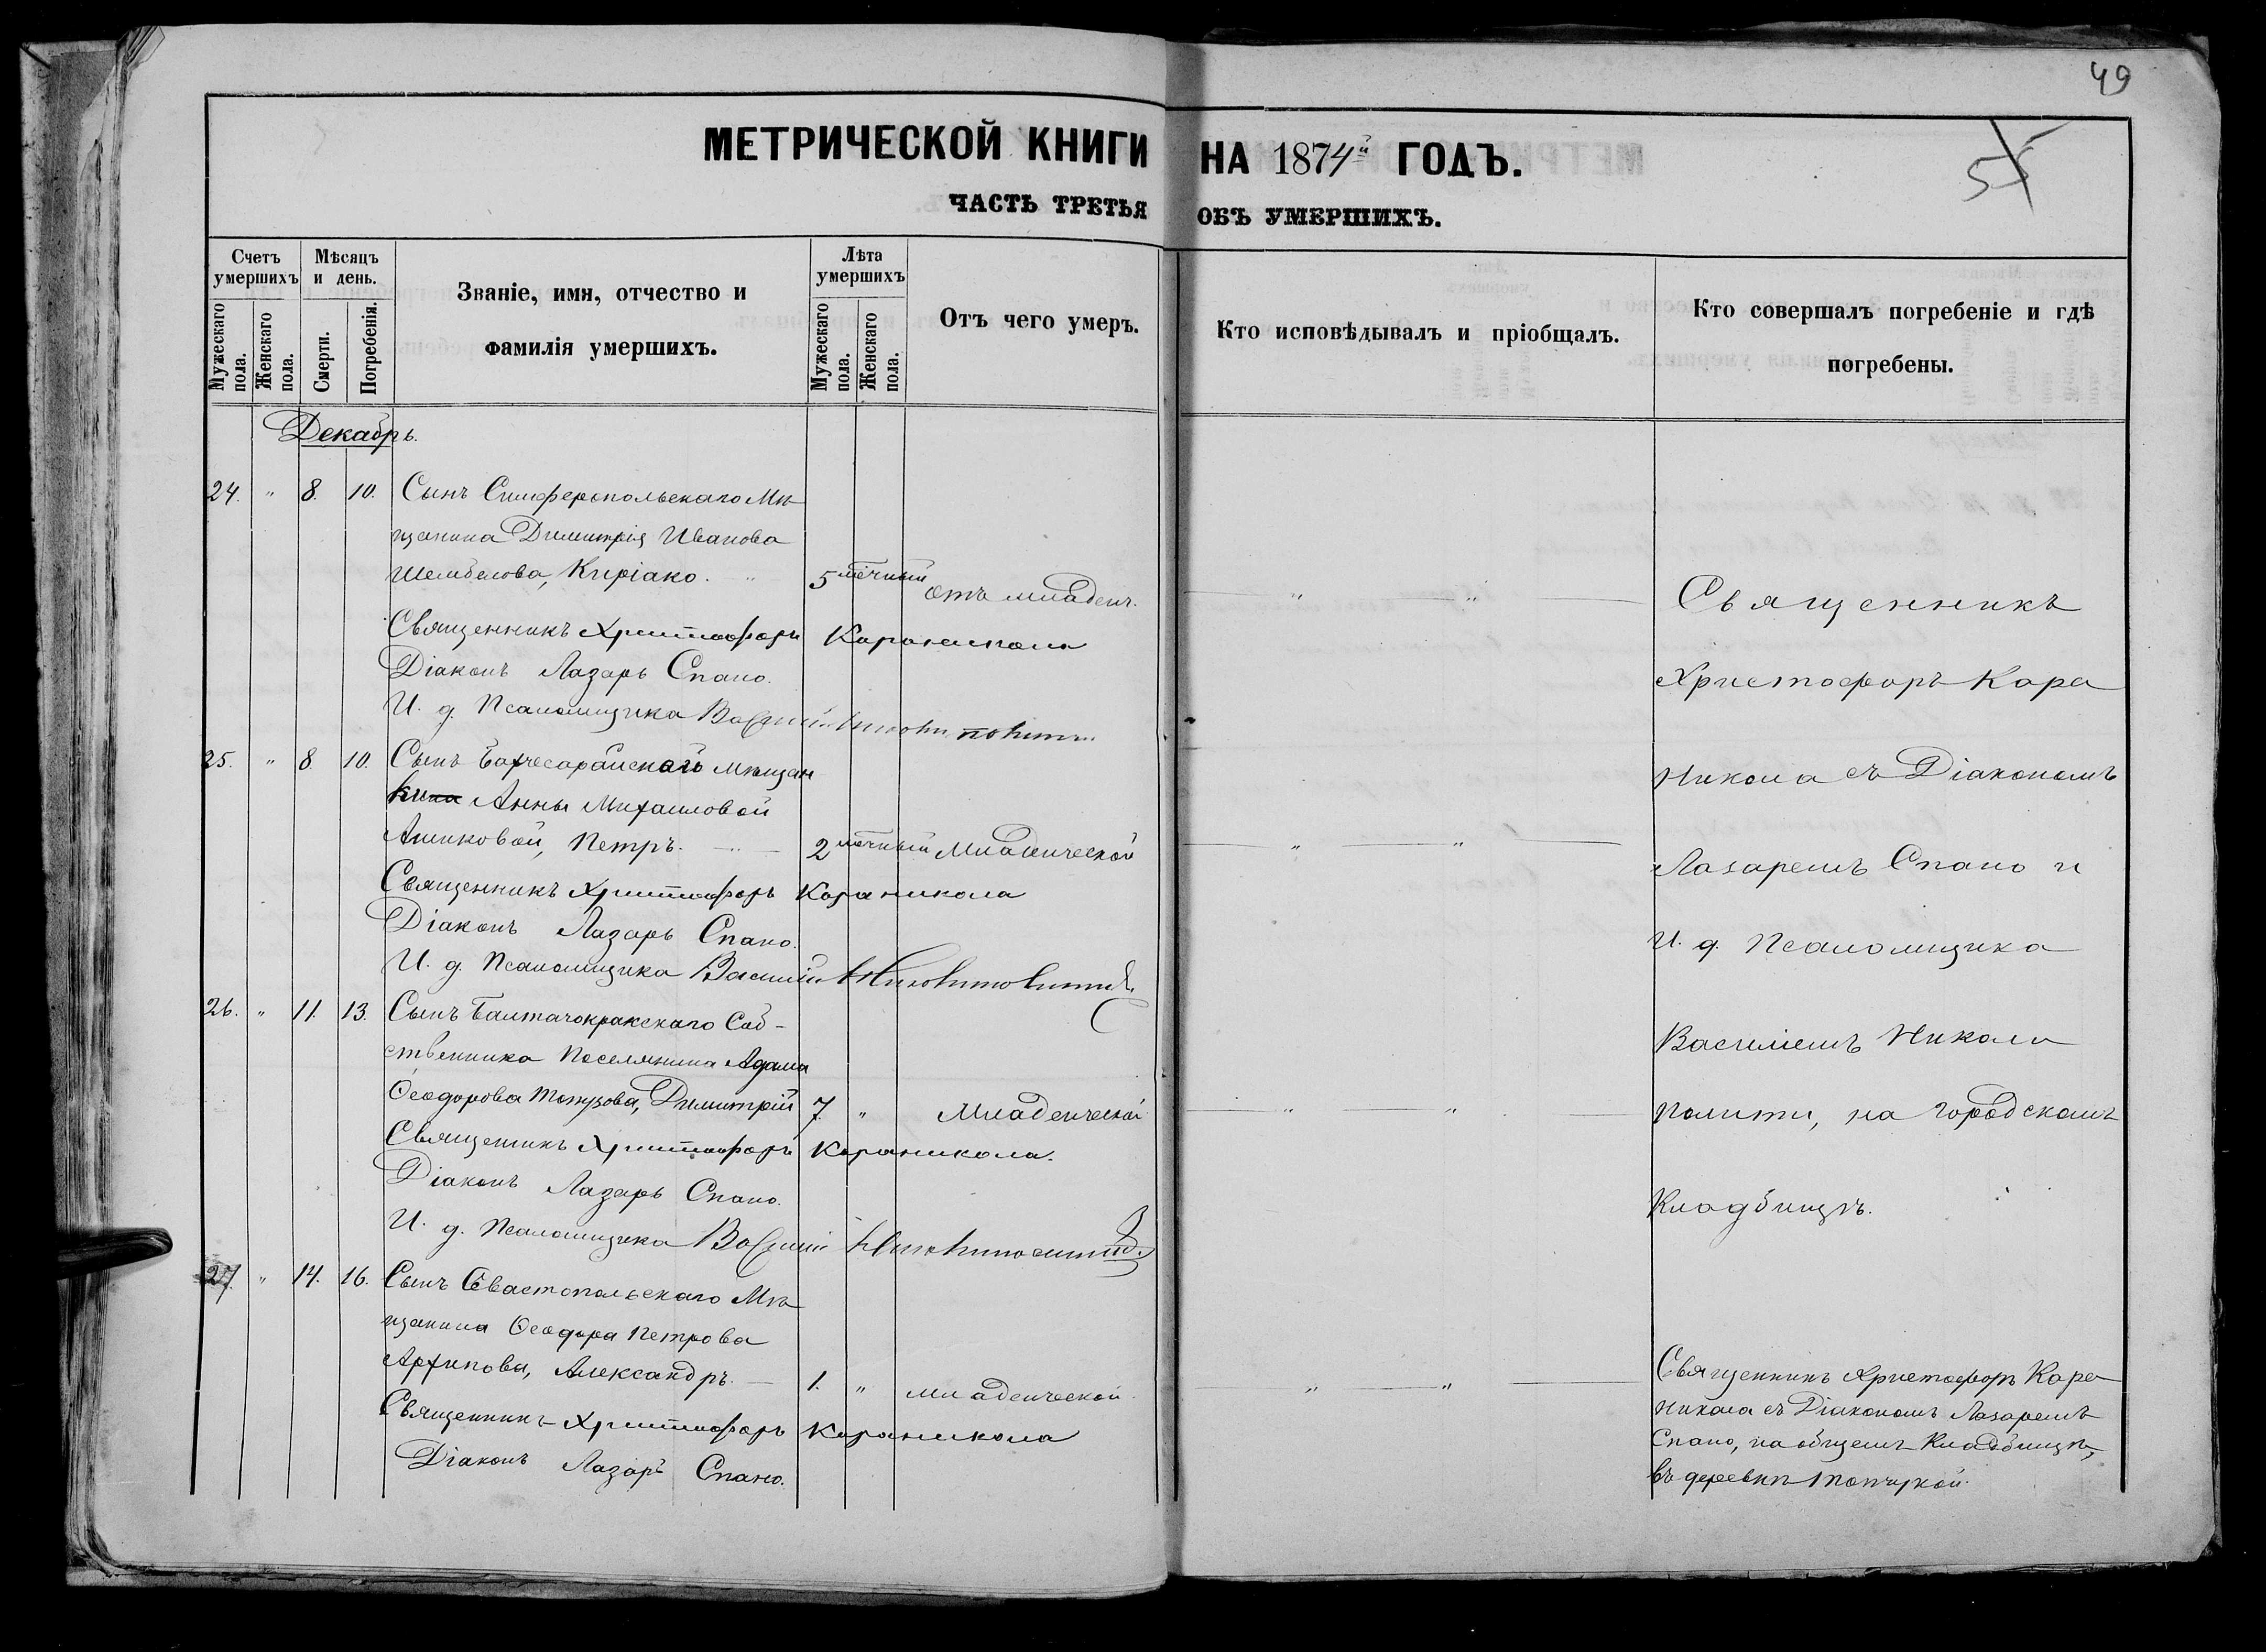 49
55
МЕТРИЧЕСКОЙ КНИГИ НА 1874й ГОДЪ.
ЧАСТЬ ТРЕТЬЯ ОБЪ УМЕРШИХЪ.
Счетъ умершихъ
Мужескаго пола.
Женскаго пола.
Мѣсяцъ и день.
Смерти.
Погребенія.
Званіе, имя, отчество и
фамилія умершихъ.
Лѣта умершихъ
Мужескаго пола.
Женскаго пола.
Отъ чего умеръ.
Кто исповѣдывалъ и пріобщалъ.
Кто совершалъ погребеніе и гдѣ
погребены.
Декабрь.
24. " 8. 10. Сынъ Симферопольскаго Мѣ
щанина Димитрія Иванова
Киріако. " 5 отъ младен.
Священникъ Христофоръ Караникола
Діаконъ Лазарь Спано.
И. д. Псаломщика Василій
25. " 8. 10. Сынъ Бахчесарайскаго мѣщан
кина Анны Михаиловой
Ашиковой, Петръ. 2 Младенческой
Священникъ Христофоръ Караникола
Діаконъ Лазарь Спано.
И. д. Псаломщика Василій
26. " 11. 13. Сынъ Балтачокракскаго Соб-
ственника Поселянина Адама
Ѳеодорова Топузова, Димитрій 7. " Младенческой
Священникъ Христофоръ Караникола.
Діаконъ Лазарь Спано.
И. д. Псаломщика Василій
27. " 14. 16. Сынъ Севастопольскаго Мѣ
щанина Ѳеодора Петрова
Архипова, Александръ. 1. " младенческой
Священникъ Христофоръ Караникола
Діаконъ Лазарь Спано.
Священникъ
Христофоръ Кара
Никола съ Діакономъ
Лазаремъ Спано и
И. д. Псаломщика
Василіемъ Никола
полити, на городскомъ
Кладбищѣ.
Священникъ Христофоръ Кара
Никола съ Діакономъ Лазаремъ
Спано, на общемъ Кладбищѣ,
въ деревнѣ Топчикой.